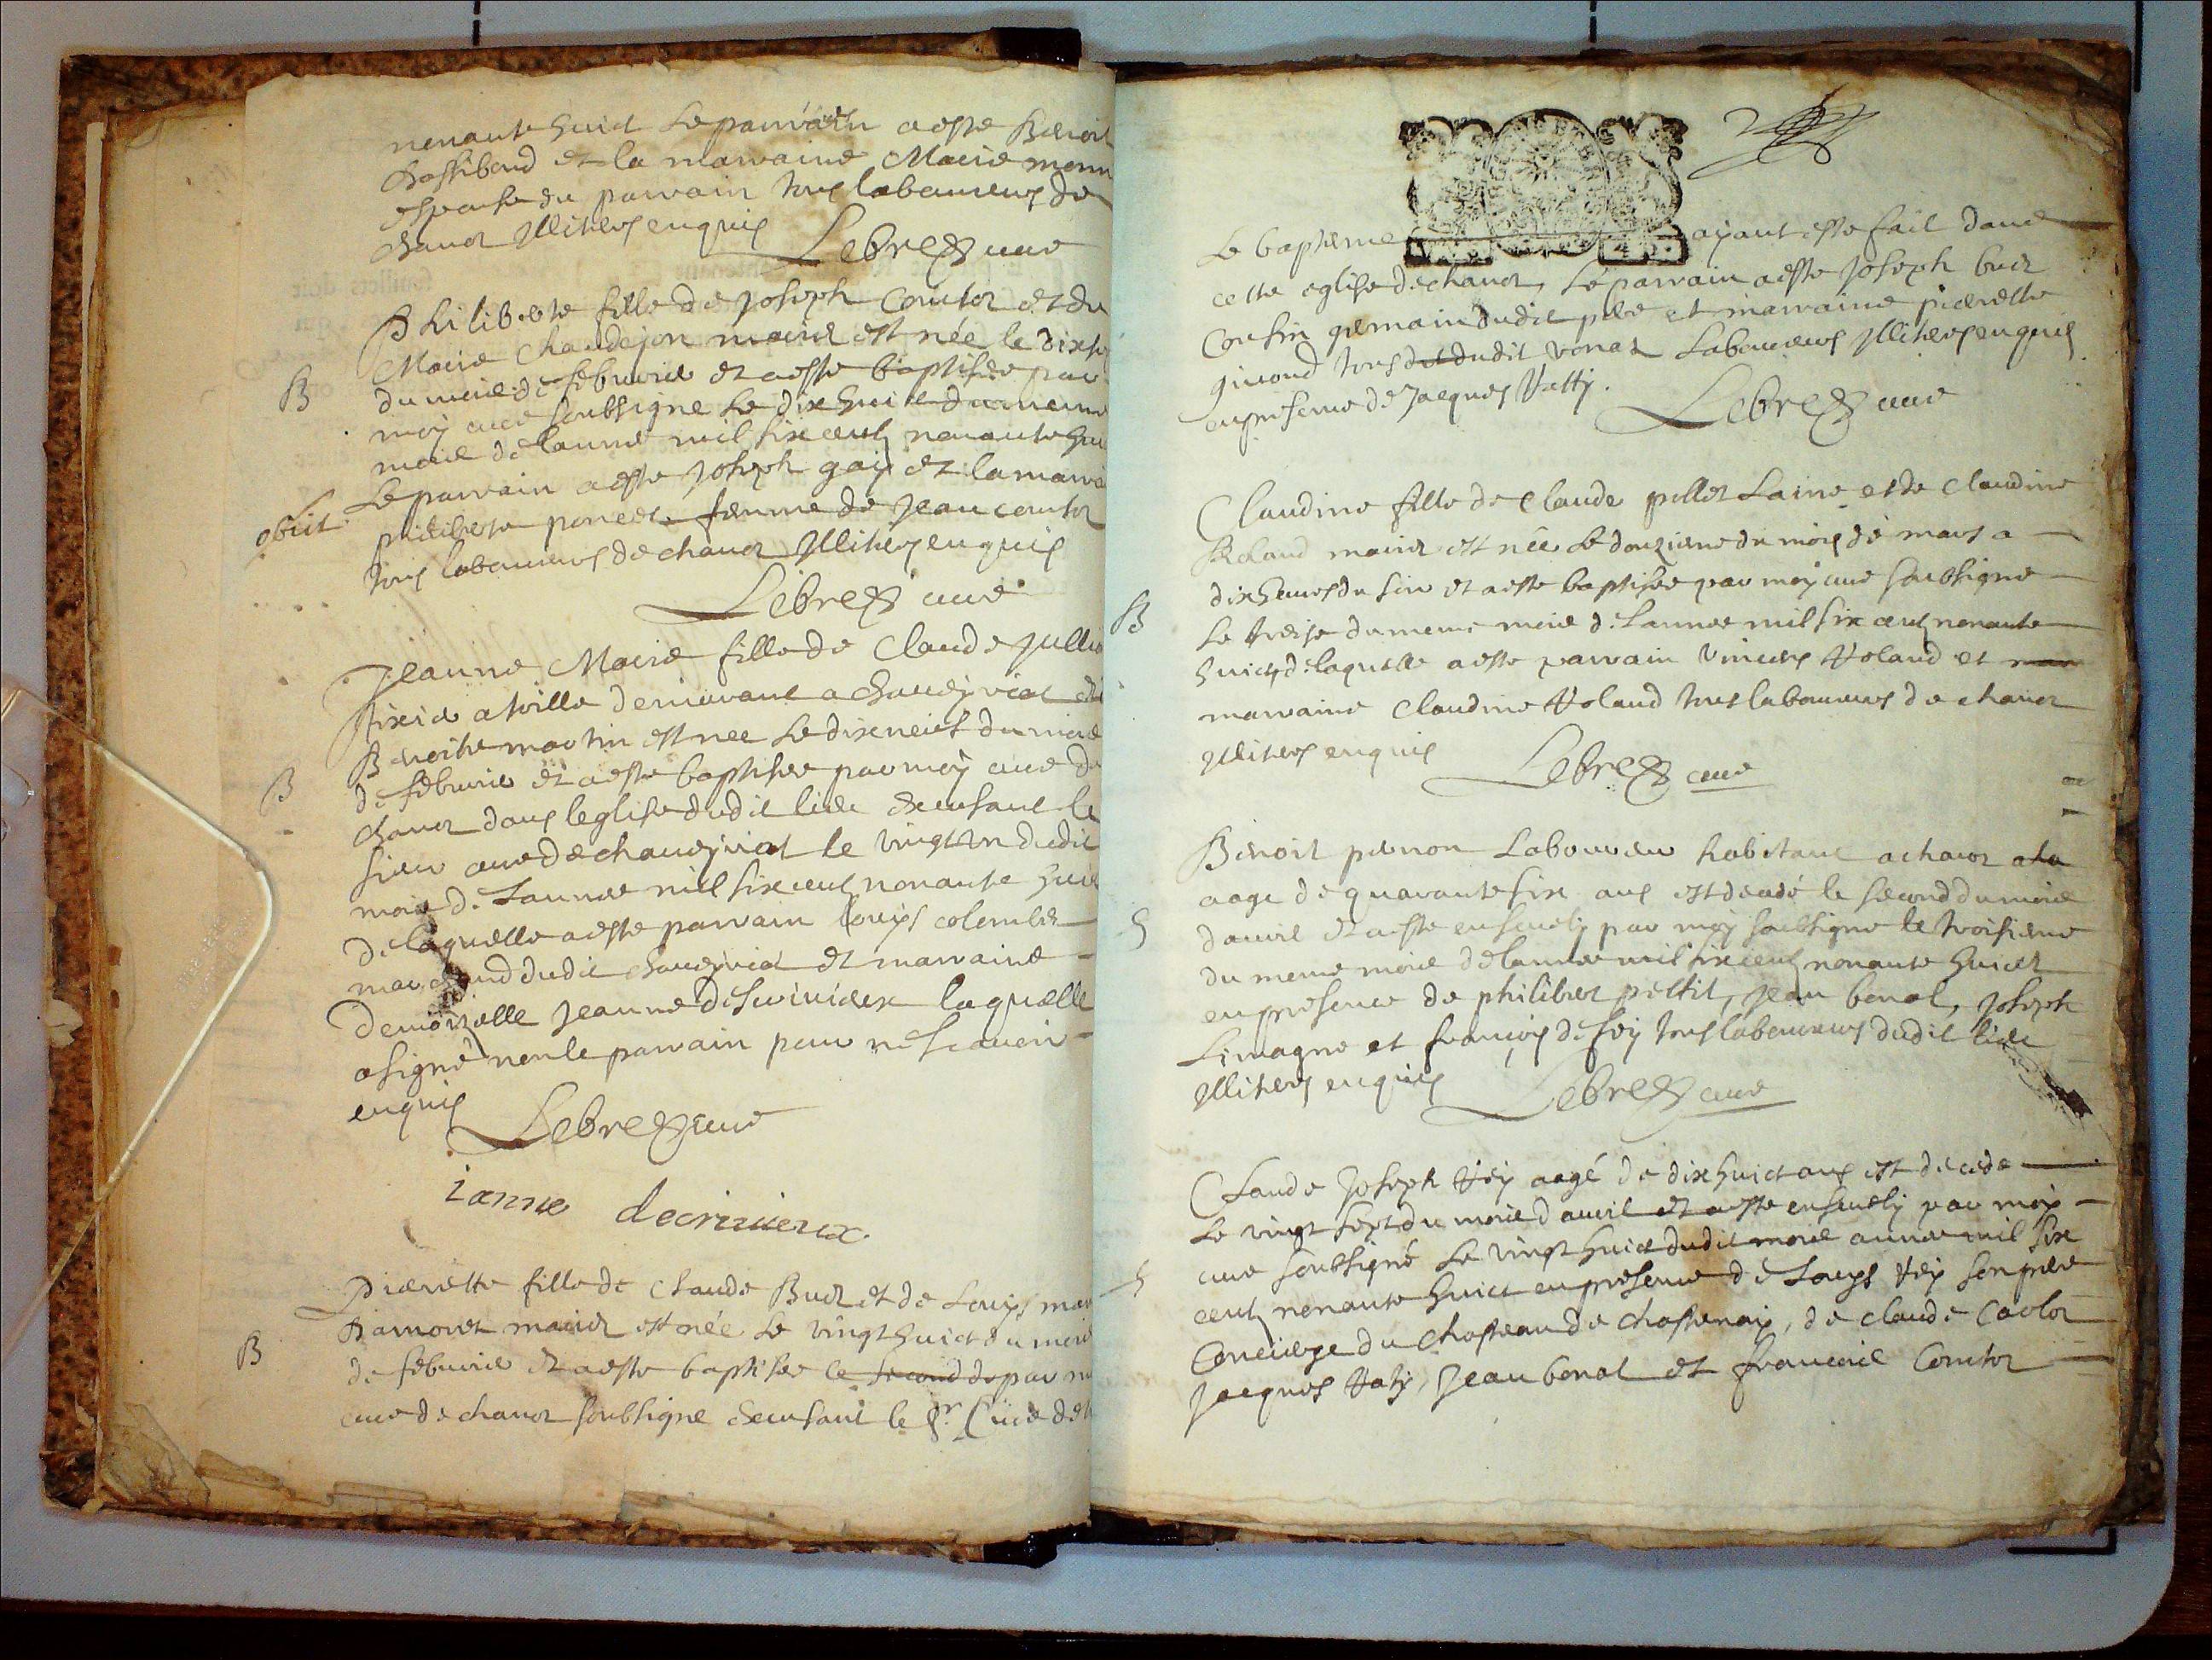 nonante huict Le parrain a esté Benoit
Chassiboud et la marraine Marie
espouse du parrain tous laboureurs de
Chanoz Illiteres enquis
Lebrez curé
Philiberte fille de Joseph Comtet et de
Marie Chaudejon mariés est née le dixsept
B
du mois de febvrier et a esté baptisée par
moy curé soubsigné Le dix huit du meme
mois de lannée mil six cents nonante huict
Le parrain a esté Joseph gay et la marraine
obiit
philiberte poncet femme de Jean comtet
tous laboureurs de chanoz Illiteres enquis
Lebrez curé
Jeanne Marie fille de Claude Jullie
demeurant a Chaveyriat et
Benoite martin est née Le dixneuf du mois
B
de febvrier et a esté baptisée par moy curé de
Chanoz dans leglise dudit lieu Excusant le
sieur curé de chaveyriat le vingt un dudit
mois de Lannée mil six cents nonante huict
de laquelle a esté parrain Louys colombet
marchand dudit Chaveyriat et marraine
Demoizelle Jeanne descrivieux laquelle
a signé non le parrain pour ne scavoir
enquis
Lebrez curé
ianne decrivieux
Pierrette fille de Claude Buet et de Louise
Bamonet mariés est née Le vingt huict du mois
B
de febvrier et a esté baptisée le second de par moy
curé de chanoz soubsigné Excusant le Sr. Curé de
Le bapteme ayant esté fait dans
cette eglise de chanoz, Le parrain a esté Joseph buet
Cousin germain dudit pere et marraine pierrette
giroud tous dudit vonas Laboureurs Illiteres enquis
en presence de Jacques Vatty.
Lebrez curé
Claudine fille de Claude pillet Lainé et de Claudine
Roland mariés est née Le douzieme du mois de mars a
dix heures du soir et a esté baptisée par moy curé soubsigné
B
Le treize du meme mois de Lannée mil six cents nonante
huict de laquelle a esté parrain Vincens Roland et mar
marraine Claudine Roland tous laboureurs de chanoz
Illiteres enquis
Lebrez curé
Benoit penon Laboureur habitant a chanoz a la
aage de quarante six ans est decedé le second du mois
S
davril et a esté ensevely par moy soubsigné le troisieme
du meme mois de lannée mil six cents nonante huict
en presence de philibert pettit, Jean bonat, Joseph
Limagne et françois de foy tous laboureurs dudit lieu
Illiteres enquis
Lebrez curé
Claude Joseph Rey aagé de dix huict ans est decedé
Le vingt sept du mois davril et a esté ensevely par moy
curé soubsigné Le vingt huict dudit mois année mil six
S
cents nonante huict en presence de Louys Rey son pere
Concierge du Chasteau de Chastenay, de Claude Carlot
Jacques Vaty, Jean bonat et francois Comtet